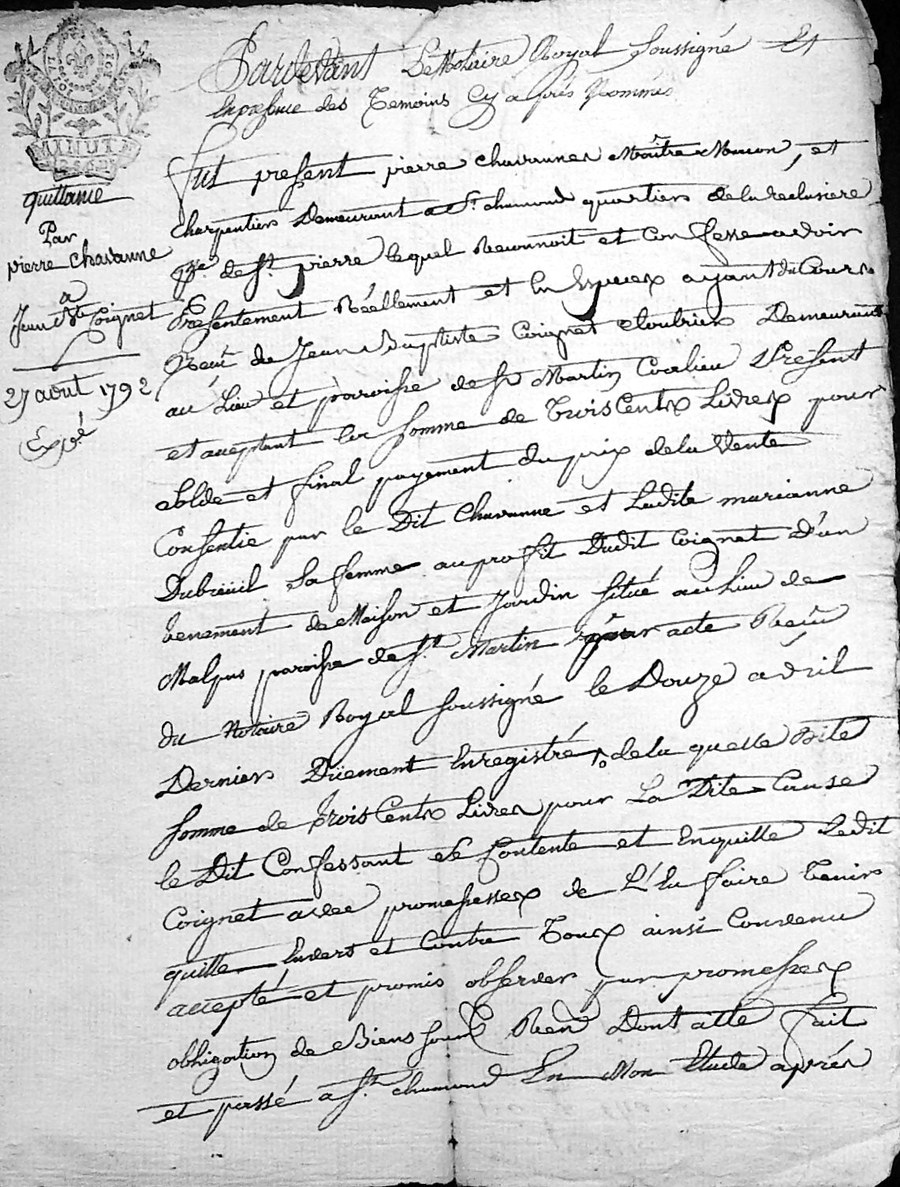 MINUTE
quittance
Par
pierre Chavanne
à
Jean Bte Coignet
27 aout 1792
Expé
Pardevant Le Notaire Royal Soussigné Et
En presence des Temoins Cy après Nommés
fut present pierre chavannes Maître Macon, et
charpentier Demeurant a St. chamond quartier de la reclusiere
psse. de St. pierre lequel Reconnoit et Confesse avoir
Presentement Réellement et En Especes ayant du Cours
Receu de Jean Baptiste Coignet cloutier Demeurant
au Lieu et paroisse de St Martin Coalieu Present
et acceptant la somme de Trois Cents Livres pour
solde et final payement du prix de la Vente
Consentie par le Dit Chavanne et Ladite marianne
Dubreüil Sa femme au profit Dudit Coignet D'un
tenement de Maison et Jardin situé au Lieu de
Malpas paroisse de St. Martin par acte Receu
du Notaire Royal soussigné le Douze avril
Dernier Düement Enregistré, de la quelle Dite
somme de Trois Cents Livres pour La Dite Cause
le Dit Confessant se Contente et En quitte Ledit
Coignet avec promesses de L'En faire Tenir
quitte Envers et Contre Tous ainsi Convenu
accepté et promis observer par promesses
obligation de Biens sous Rend Dont acte fait
et passé a St. chamond En Mon Etude après